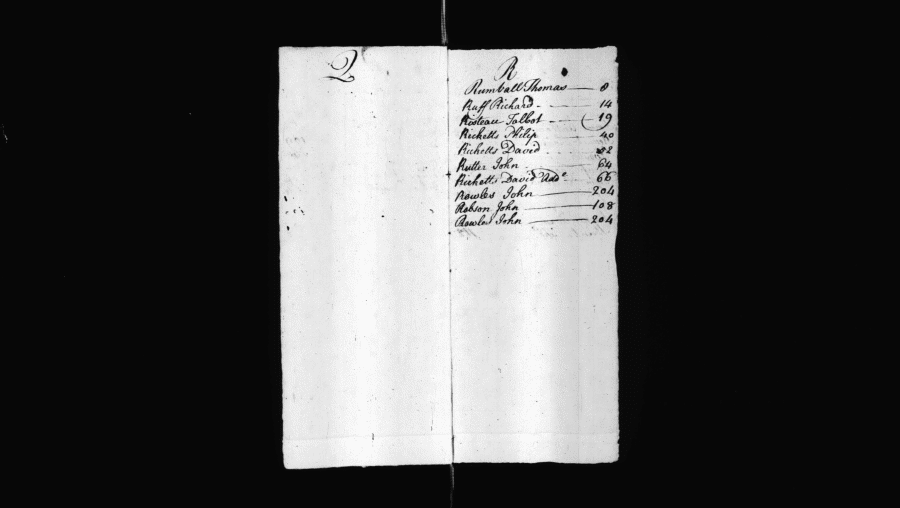 Q
R
Rumball Thomas 8
Ruff Richard 14
Risteau Talbot 19
Ricketts Philip 40
Ricketts David 52
Rutter John 64
Ricketts David 66
Rowles John 204
Robson John 108
Rowles John 204